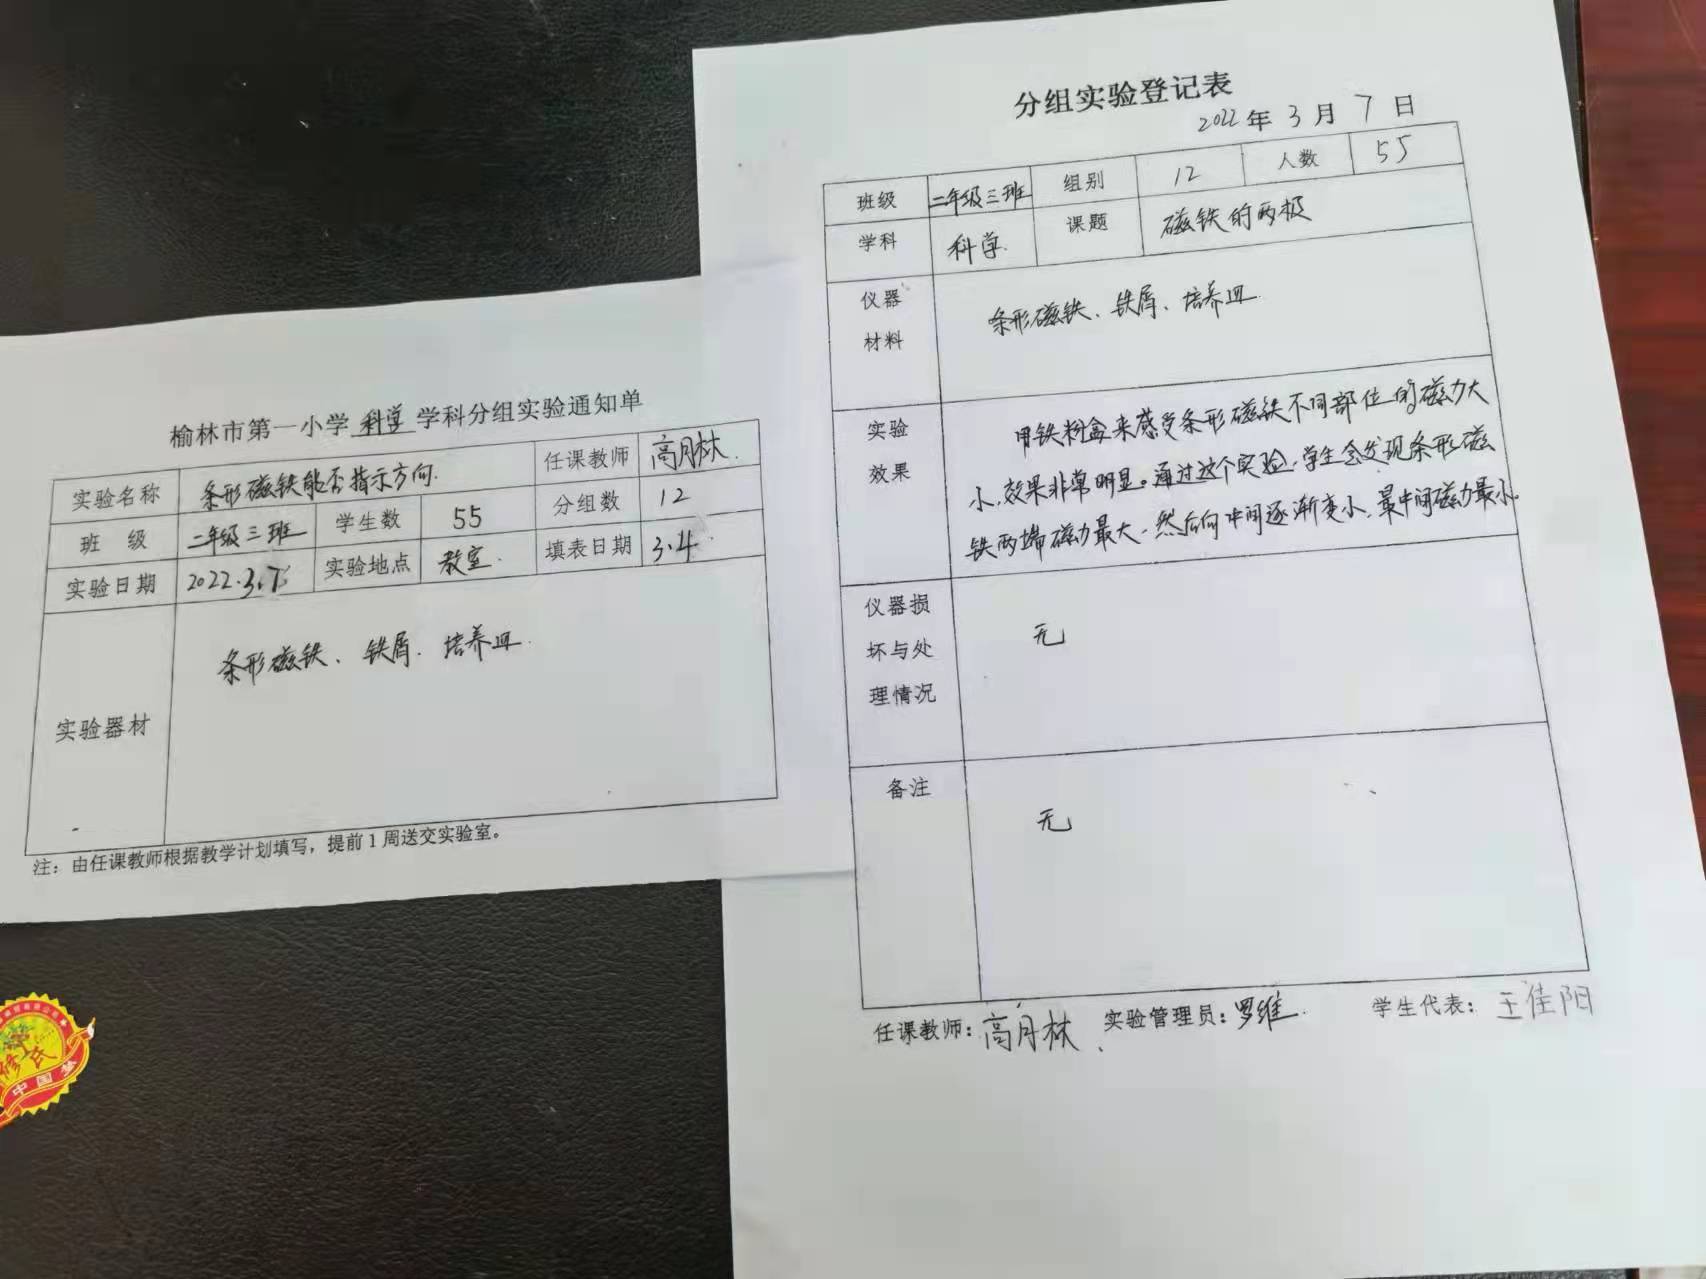 榆林市第一小学 科学 学科分组实验通知单
实验名称 条形磁铁能否指示方向. 任课教师 高月林.
班 级 二年级三班 学生数 55 分组数 12
实验日期 2022.3.7 实验地点 教室. 填表日期 3.4.
实验器材
条形磁铁、铁屑、培养皿.
注：由任课教师根据教学计划填写，提前1周送交实验室。
分组实验登记表
2022年3月7日
班级 二年级三班 组别 12 人数 55
学科 科学. 课题 磁铁的两极
仪器
材料
条形磁铁、铁屑、培养皿.
实验
效果
用铁粉盒来感受条形磁铁不同部位的磁力大
小，效果非常明显。通过这个实验，学生会发现条形磁
铁两端磁力最大，然后向中间逐渐变小，最中间磁力最小。
仪器损
坏与处
理情况
无
备注
无
任课教师：高月林 实验管理员：罗维. 学生代表：王佳阳
修氏
中国梦